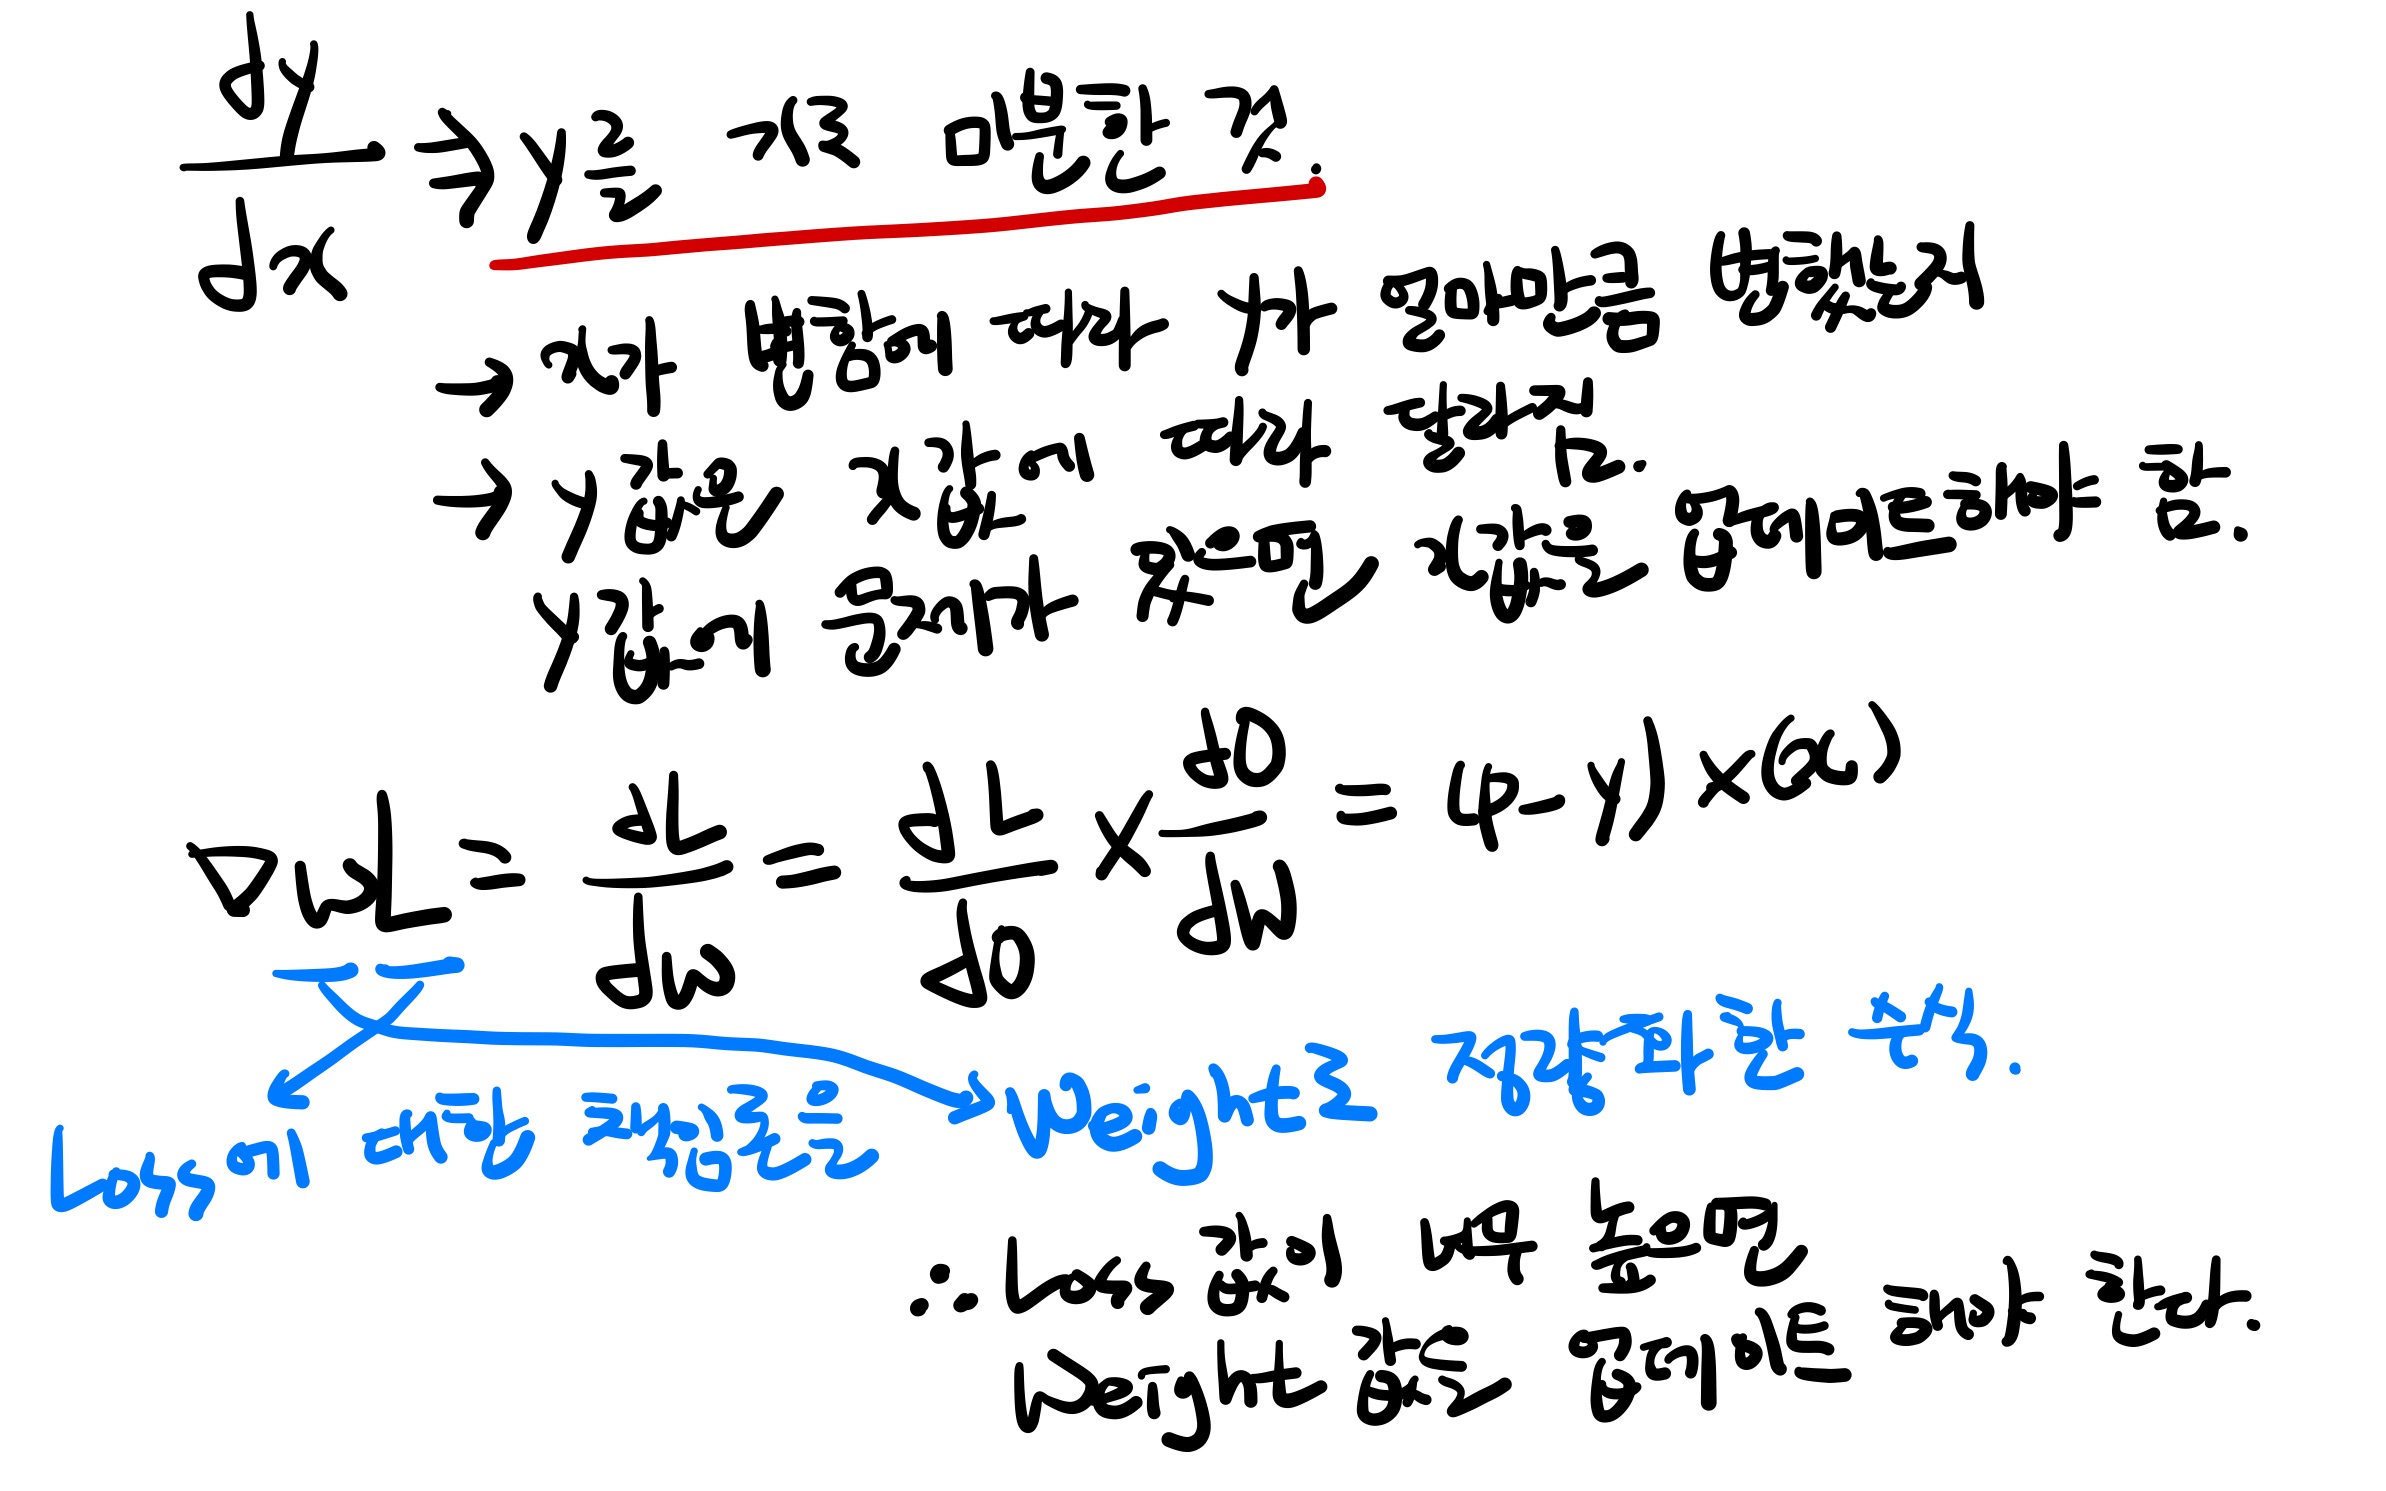 dy/dx → y를 x로 미분한 것.
→ x가 변함에 따라 y가 얼마만큼 변했는지
→ y값은 x값에 따라 달라짐.
y값에 문제가 있으면 x값을 업데이트해야 함.
∇wL = dL/dw = dL/dO × dO/dW = (p-y) × (x)
Loss에 대한 책임을 Weight로 전가하는 방식.
∴ Loss 값이 너무 높으면
Weight 값을 업데이트 해야 한다.